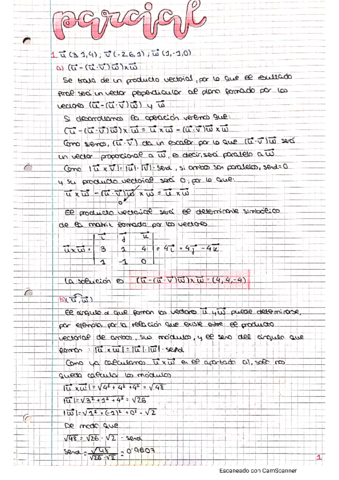 parcial
1. u⃗ (3,1,4), v⃗ (-2,6,1), w⃗ (1,-1,0)
a) (u⃗ - (u⃗·v⃗)w⃗)×w⃗
Se trata de un producto vectorial, por lo que el resultado
final será un vector perpendicular al plano formado por los
vectores (u⃗-(u⃗·v⃗)w⃗) y w⃗
Si desarrollamos la operación vemos que:
(u⃗-(u⃗·v⃗)w⃗)×w⃗ = u⃗×w⃗ - (u⃗·v⃗)w⃗×w⃗
Como vemos, (u⃗·v⃗) da un escalar por lo que (u⃗·v⃗)w⃗ será
un vector proporcional a w⃗, es decir, será paralelo a w⃗.
Como |u⃗×v⃗|=|u⃗|·|v⃗|·senα, si ambos son paralelos, senα=0
y su producto vectorial será 0, por lo que:
u⃗×w⃗ - (u⃗·v⃗)w⃗×w⃗ = u⃗×w⃗
0
El producto vectorial será el determinante simbólico
de la matriz formada por los vectores.
i⃗ j⃗ k⃗
u⃗×w⃗ = 3 1 4 = 4i⃗ + 4j⃗ - 4k⃗
1 -1 0
La solución es (u⃗-(u⃗·v⃗)w⃗)×w⃗ = (4,4,-4)
b) (u⃗,w⃗)
El ángulo α que forman los vectores u⃗ y w⃗ puede determinarse,
por ejemplo, por la relación que existe entre el producto
vectorial de ambos, sus módulos, y el seno del ángulo que
forman: |u⃗×w⃗|=|u⃗|·|w⃗|·senα
Como ya calculamos u⃗×w⃗ en el apartado a), solo nos
queda calcular los módulos
|u⃗×w⃗|=√4²+4²+4² = √48
|u⃗|=√3²+1²+4² = √26
|w⃗|=√1²+(-1)²+0² = √2
De modo que
√48 = √26·√2·senα
senα = √48/√26·√2 = 0,9607
1
Escaneado con CamScanner